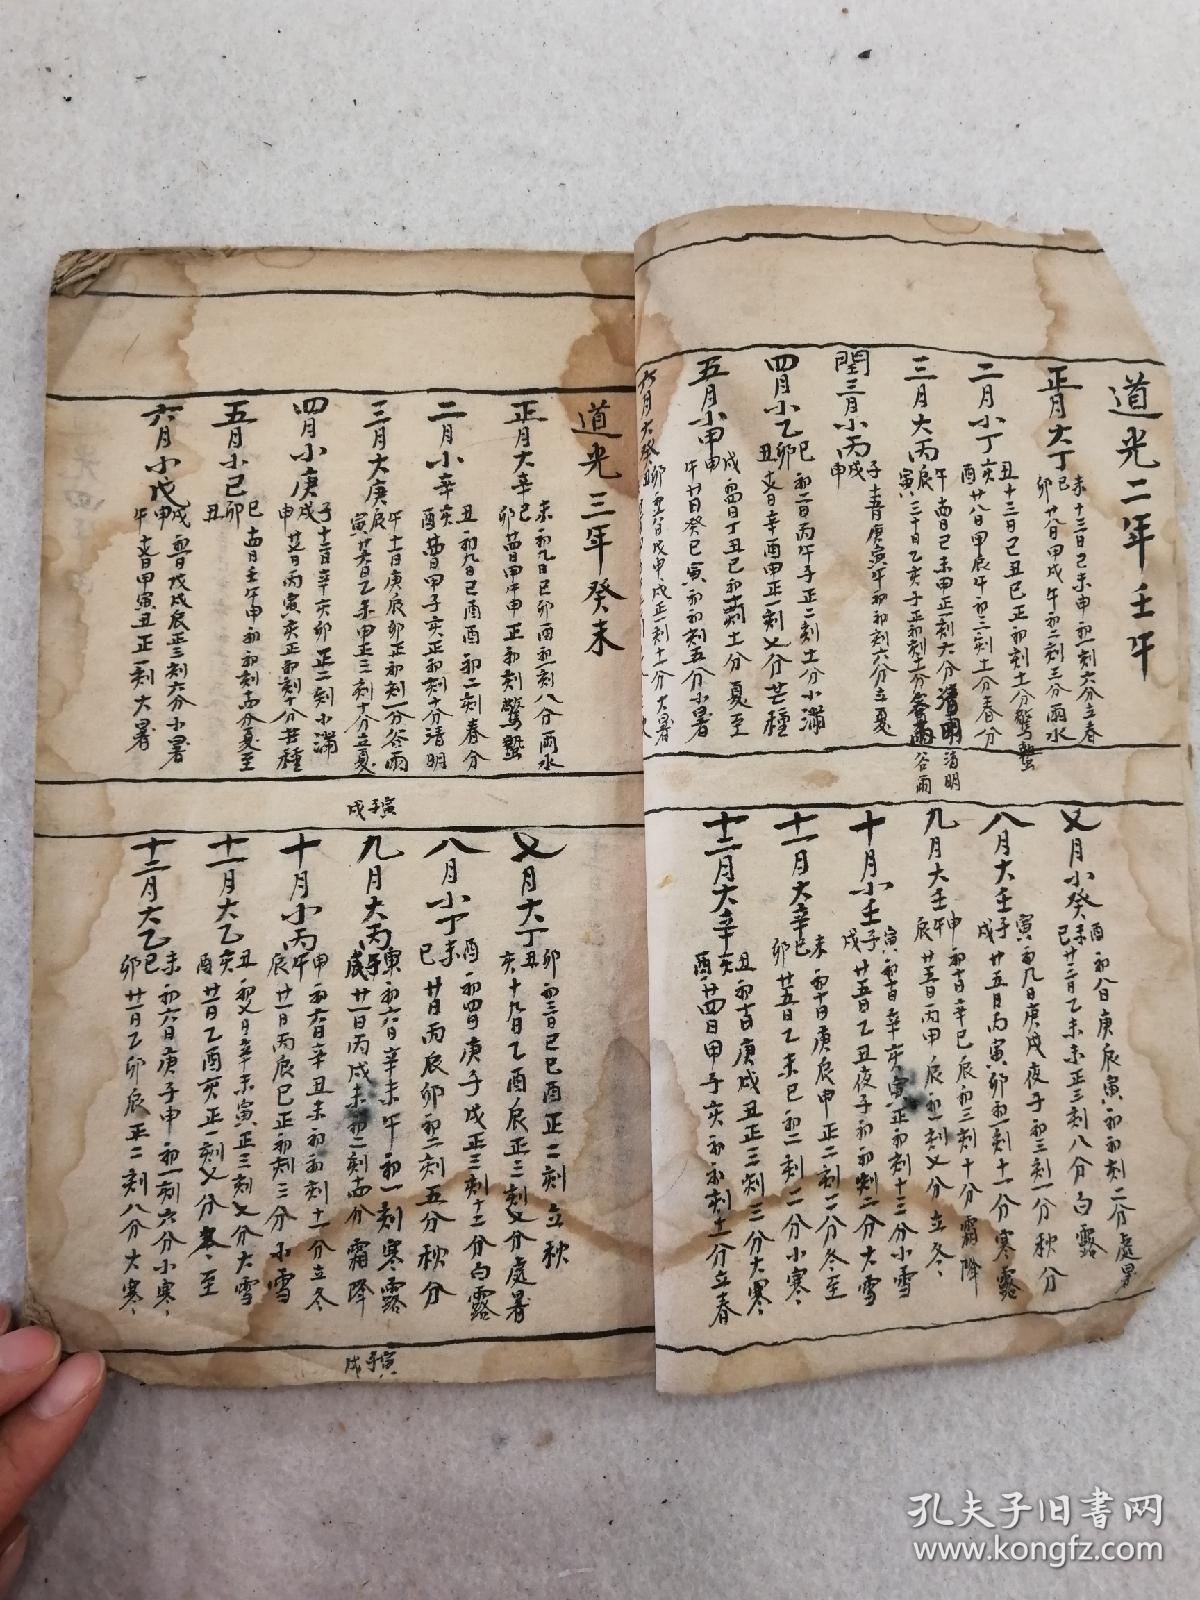 道光二年壬午
正月大丁巳卯
未十三日己未申初一刻六分立春
廿八日甲戌午初二刻三分雨水
二月小丁亥酉
丑十三日己丑巳正初刻十分驚蟄
廿八日甲辰午初三刻十分春分
三月大丙辰寅
午十四日己未申正一刻六分清明
三十日乙亥子正初刻十分谷雨
清明
谷雨
閏三月小丙戌申
子十五日庚寅午初初刻六分立夏
四月小乙卯丑
巳初二日丙午子正二刻十分小滿
十七日辛酉申正一刻乂分芒種
五月小甲申午
戌初四日丁丑巳初十刻十分夏至
廿日癸巳寅初初刻五分小暑
六月大癸丑
卯初六日戊申戌正一刻十一分大暑
乂月小癸未巳
酉初八日庚辰寅初初刻二分處暑
廿三日乙未未正三刻八分白露
八月大壬子戌
寅初九日庚戌夜子初三刻一分秋分
廿五日丙寅卯初一刻十一分寒露
九月大壬午辰
申初十日辛巳辰初三刻十分霜降
廿五日丙申辰初一刻乂分立冬
十月小壬子戌
寅初十日辛亥寅正初刻十三分小雪
廿五日乙丑夜子初初刻二分大雪
十一月大辛巳卯
未初十日庚辰申正二刻一分冬至
廿五日乙未巳初二刻二分小寒
十二月大辛亥酉
丑初十日庚戌丑正三刻三分大寒
廿四日甲子亥初初刻十一分立春
道光三年癸未
正月大辛巳卯
未初九日己卯酉初一刻八分雨水
廿四日甲午申正初刻驚蟄
二月小辛亥酉
丑初九日己酉酉初二刻春分
廿四日甲子亥正初刻十分清明
三月大庚辰寅
午十一日庚辰卯正初刻一分谷雨
廿六日乙未申正三刻十分立夏
四月小庚戌申
子十二日辛亥卯正二刻小滿
廿七日丙寅亥正初刻十分芒種
五月小己卯丑
巳十四日壬午申初初刻十四分夏至
六月小戊申午
戌初一日戊戌辰正三刻六分小暑
十七日甲寅丑正一刻大暑
寅子戌
乂月大丁丑亥
卯初三日己巳酉正二刻立秋
十九日乙酉辰正二刻乂分處暑
八月小丁未巳
酉初四日庚子戌正三刻十二分白露
廿日丙辰卯初二刻五分秋分
九月大丙子戌
寅初六日辛未午初一刻寒露
廿一日丙戌未初二刻十四分霜降
十月小丙午辰
申初六日辛丑未初初刻十一分立冬
廿一日丙辰巳正初刻三分小雪
十一月大乙亥酉
丑初乂日辛未寅正三刻乂分大雪
廿一日乙酉亥正一刻乂分冬至
十二月大乙巳卯
未初六日庚子申初一刻六分小寒
廿一日乙卯辰正二刻八分大寒
寅子戌
孔夫子旧书网
www.kongfz.com